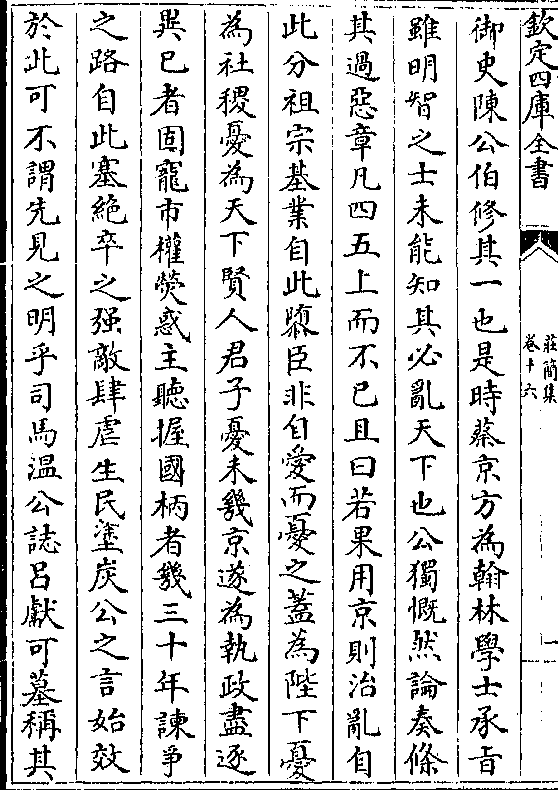 欽定四庫全書
莊簡集
卷十六
御史陳公伯修其一也是時蔡京方為翰林學士承旨
雖明智之士未能知其必亂天下也公獨慨然論奏條
其過惡章凡四五上而不已且曰若果用京則治亂自
此分祖宗基業自此隳臣非自愛而憂之蓋為陛下憂
為社稷憂為天下賢人君子憂未幾京遂為執政盡逐
異已者固寵市權熒惑主聽握國柄者幾三十年諫爭
之路自此塞絶卒之强敵肆虐生民塗炭公之言始效
於此可不謂先見之明乎司馬温公誌吕獻可墓稱其